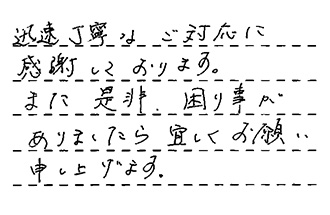 迅速丁寧なご対応に
感謝しております。
また是非、困り事が
ありましたら宜しくお願い
申し上げます。